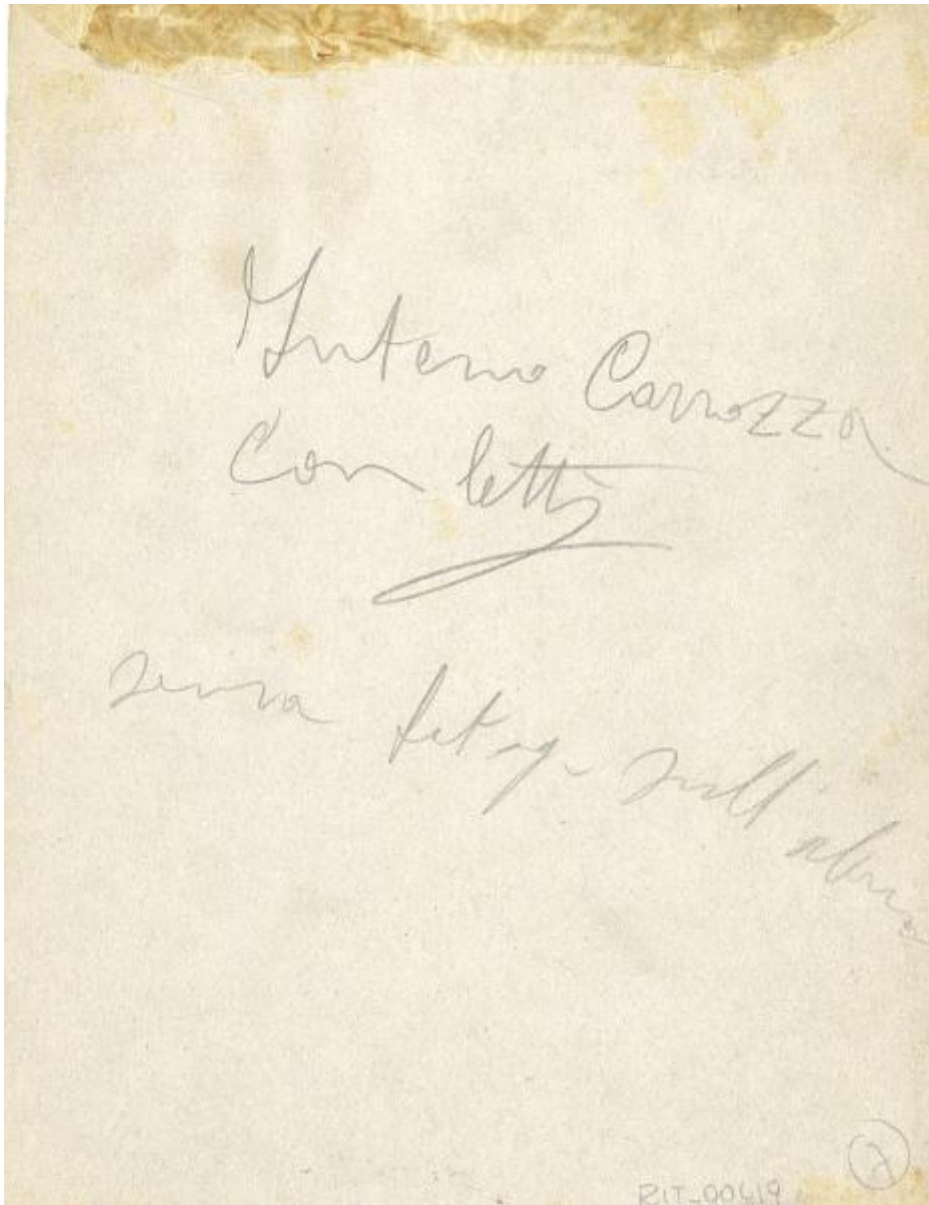 Interno Carrozza
Con letti
senza fotog. sull'
RIT-00419